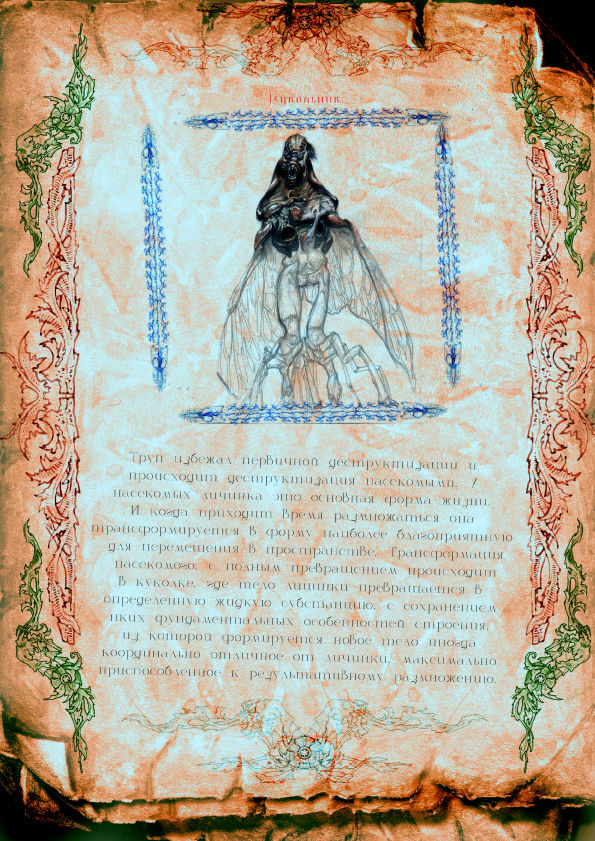 Труп избежал первичной деструктизации и
происходит деструктизация насекомыми. У
насекомых личинка это основная форма жизни.
И когда приходит время размножаться она
трансформируется в форму наиболее благоприятную
для перемещения в пространстве. Трансформация
насекомого, с полным превращением происходит
в куколке, где тело личинки превращается в
определенную жидкую субстанцию, с сохранением
неких фундаментальных особенностей строения,
из которой формируется новое тело иногда
координально отличное от личинки, максимально
приспособленное к результативному размножению.